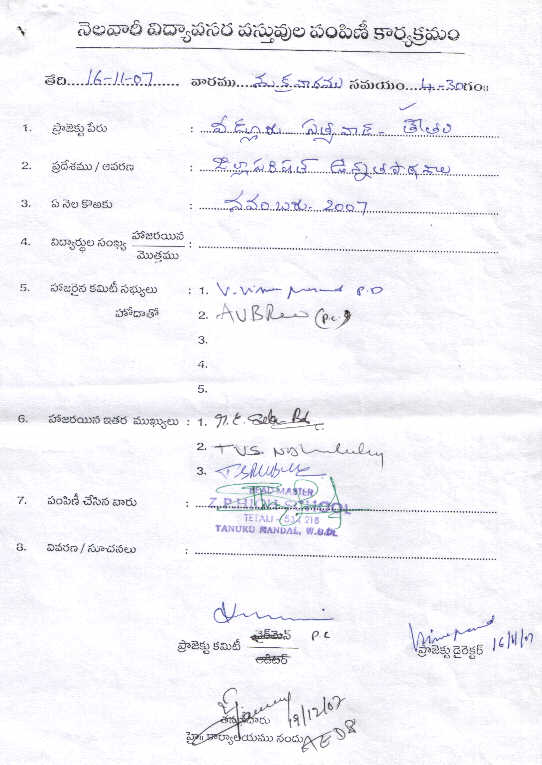 నెలవారీ విద్యావసర వస్తువుల పంపిణీ కార్యక్రమం
తేది....16-11-07...... వారము....శుక్రవారము సమయం...4-30గం॥
1. ప్రాజెక్టు పేరు : తేతలి
2. ప్రదేశము / ఆవరణ : జిల్లాపరిషత్ ఉన్నతపాఠశాల
3. ఏ నెల కొఱకు : నవంబరు- 2007
4. విద్యార్థుల సంఖ్య హాజరయిన / మొత్తము :
5. హాజరైన కమిటీ సభ్యులు : 1. P.O
హోదాతో 2. AVBRao (P.C)
3.
4.
5.
6. హాజరయిన ఇతర ముఖ్యులు : 1.
2. TVS.
3.
HEAD MASTER
7. పంపిణీ చేసిన వారు : Z.P.HIGH SCHOOL
TETALI - 534 218
TANUKU MANDAL, W.G.Dt.
8. వివరణ / సూచనలు :
ప్రాజెక్టు కమిటీ ఛైర్మెన్ P.C
ఆడిటర్
ప్రాజెక్టు డైరెక్టర్ 16/11/07
19/12/07
హై॥ కార్యాలయము నందు AEO8